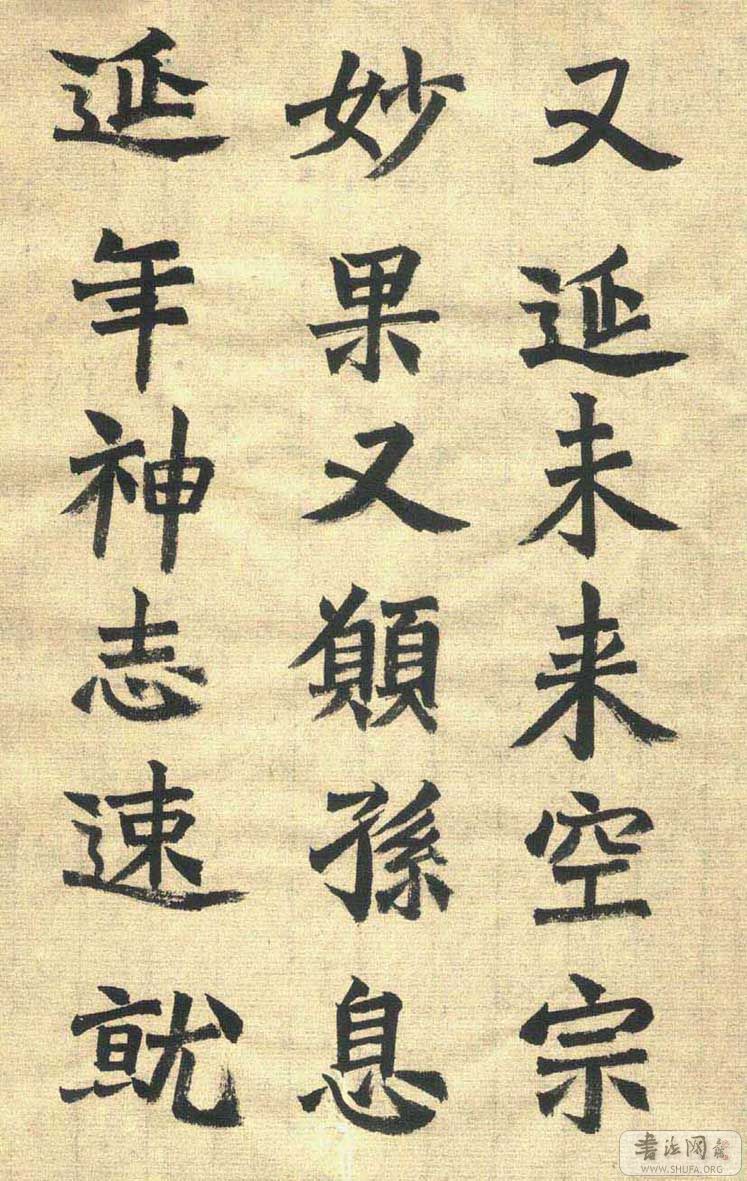 又延未来空宗
妙果又願孫息
延年神志速就
书法网
WWW.SHUFA.ORG